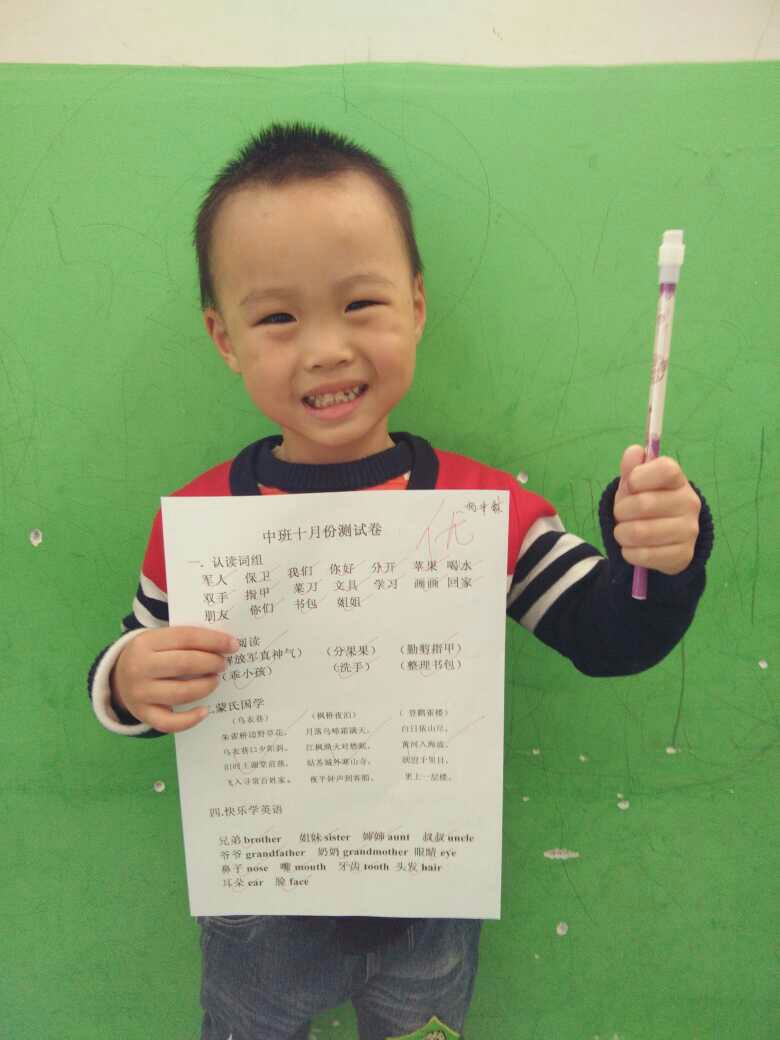 中班十月份测试卷
优
一. 认读词组
军人 保卫 我们 你好 分开 苹果 喝水
双手 指甲 菜刀 文具 学习 画画 回家
朋友 你们 书包 姐姐
阅读
解放军真神气） （分果果） （勤剪指甲）
（乖小孩） （洗手） （整理书包）
.蒙氏国学
（乌衣巷） （枫桥夜泊） （登鹳雀楼）
朱雀桥边野草花， 月落乌啼霜满天， 白日依山尽，
乌衣巷口夕阳斜。 江枫渔火对愁眠。 黄河入海流。
旧时王谢堂前燕， 姑苏城外寒山寺， 欲穷千里目，
飞入寻常百姓家。 夜半钟声到客船。 更上一层楼。
四.快乐学英语
兄弟 brother 姐妹 sister 婶婶 aunt 叔叔 uncle
爷爷 grandfather 奶奶 grandmother 眼睛 eye
鼻子 nose 嘴 mouth 牙齿 tooth 头发 hair
耳朵 ear 脸 face